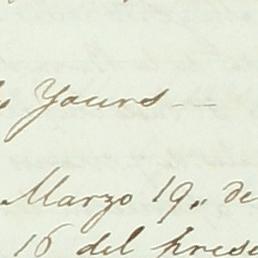 Yours --
Marzo 19,, de
16 del prese